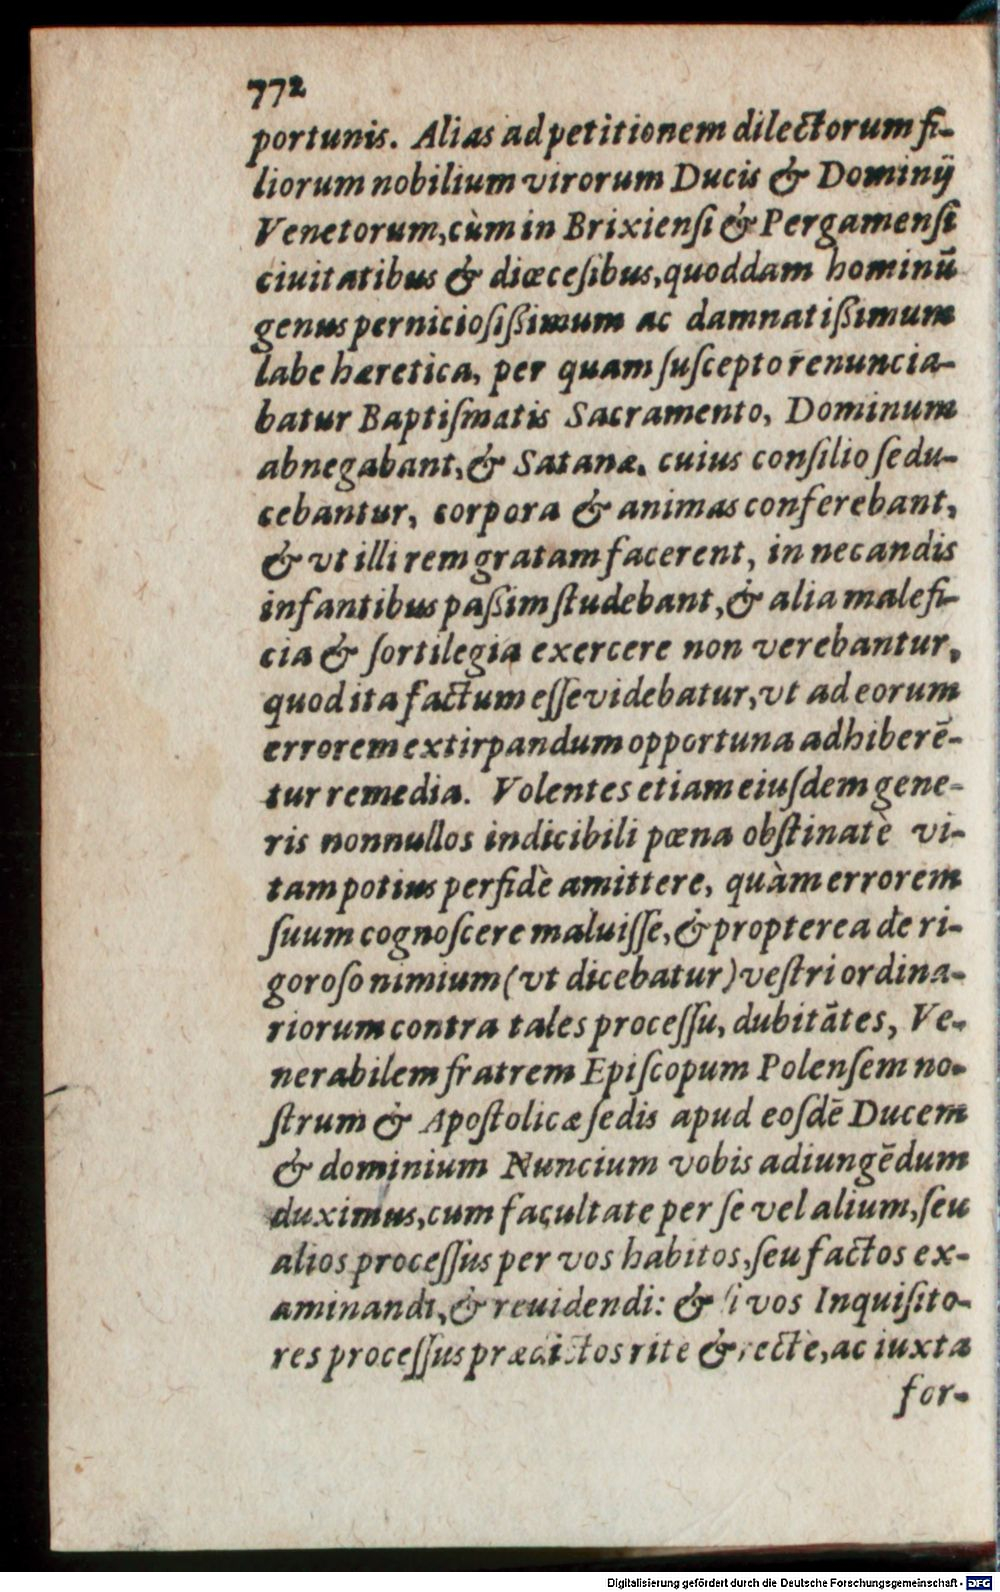 772
portunis. Alias ad petitionem dilectorum fi-
liorum nobilium virorum Ducis & Dominij
Venetorum, cùm in Brixienſi & Pergamenſi
ciuitatibus & diœceſibus, quoddam hominū
genus pernicioſiſſimum ac damnatiſſimum
labe hæretica, per quam ſuſcepto renuncia-
batur Baptiſmatis Sacramento, Dominum
abnegabant, & Satanæ, cuius conſilio ſedu-
cebantur, corpora & animas conferebant,
& vt illi rem gratam facerent, in necandis
infantibus paſſim ſtudebant, & alia malefi-
cia & ſortilegia exercere non verebantur,
quod ita factum eſſe videbatur, vt ad eorum
errorem extirpandum opportuna adhiberē-
tur remedia. Volentes etiam eiuſdem gene-
ris nonnullos indicibili pœna obſtinatè vi-
tam potius perfidè amittere, quàm errorem
ſuum cognoſcere maluiſſe, & propterea de ri-
goroſo nimium (vt dicebatur) veſtri ordina-
riorum contra tales proceſſu, dubitātes, Ve-
nerabilem fratrem Epiſcopum Polenſem no-
ſtrum & Apoſtolicæ ſedis apud eoſdē Ducem
& dominium Nuncium vobis adiungēdum
duximus, cum facultate per ſe vel alium, ſeu
alios proceſſus per vos habitos, ſeu factos ex-
aminandi, & reuidendi: & ſi vos Inquiſito-
res proceſſus prædictos rite & rectè, ac iuxta
for-
Digitalisierung gefördert durch die Deutsche Forschungsgemeinschaft - DFG